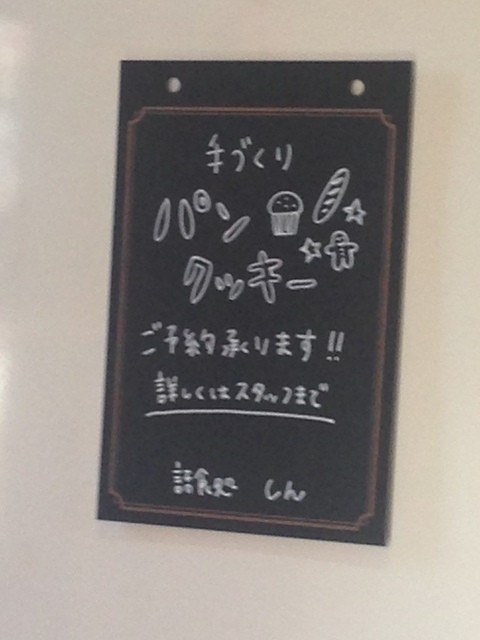 手づくり
パン
クッキー
ご予約承ります!!
詳しくはスタッフまで
話食処 しん